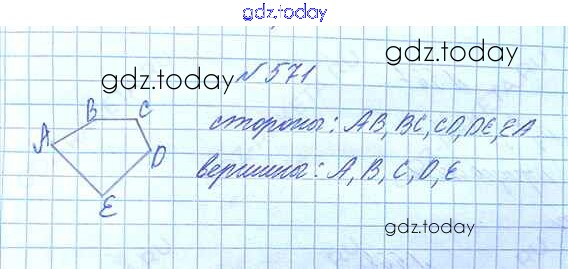 gdz.today
№571
gdz.today
gdz.today
B C
A
D
E
стороны: AB, BC, CD, DE, EA
вершины: A, B, C, D, E
gdz.today